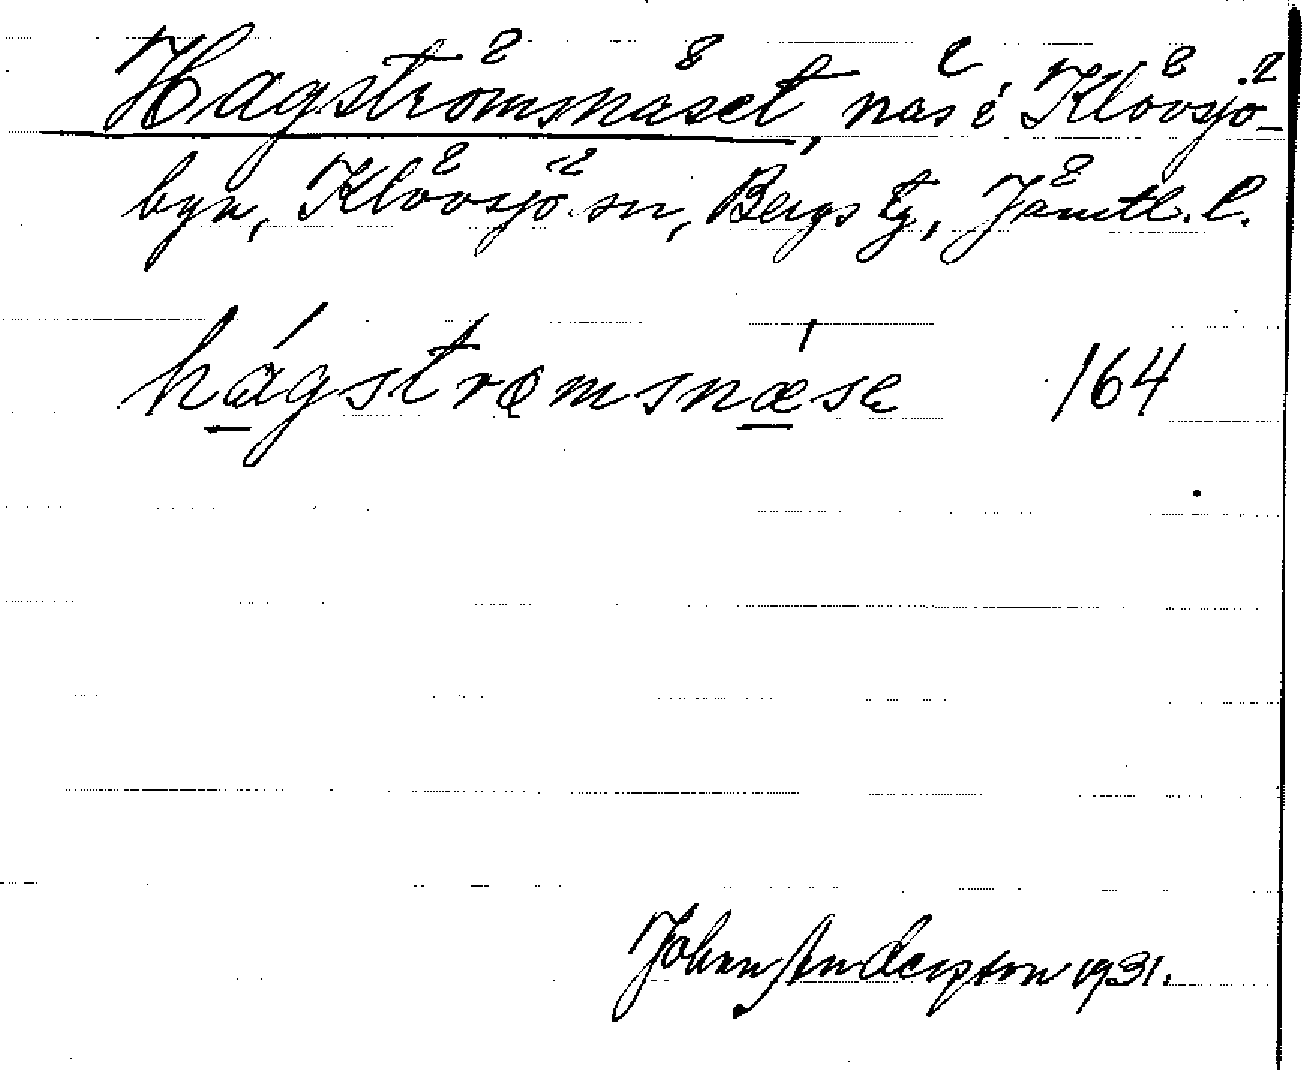 Hagströmsnäset, näs i Klövsjö-
byn, Klövsjö sn, Bergs tg, Jämtl. l.
hágstrœmsnæ̀sє 164
Johan Anderson 1931.